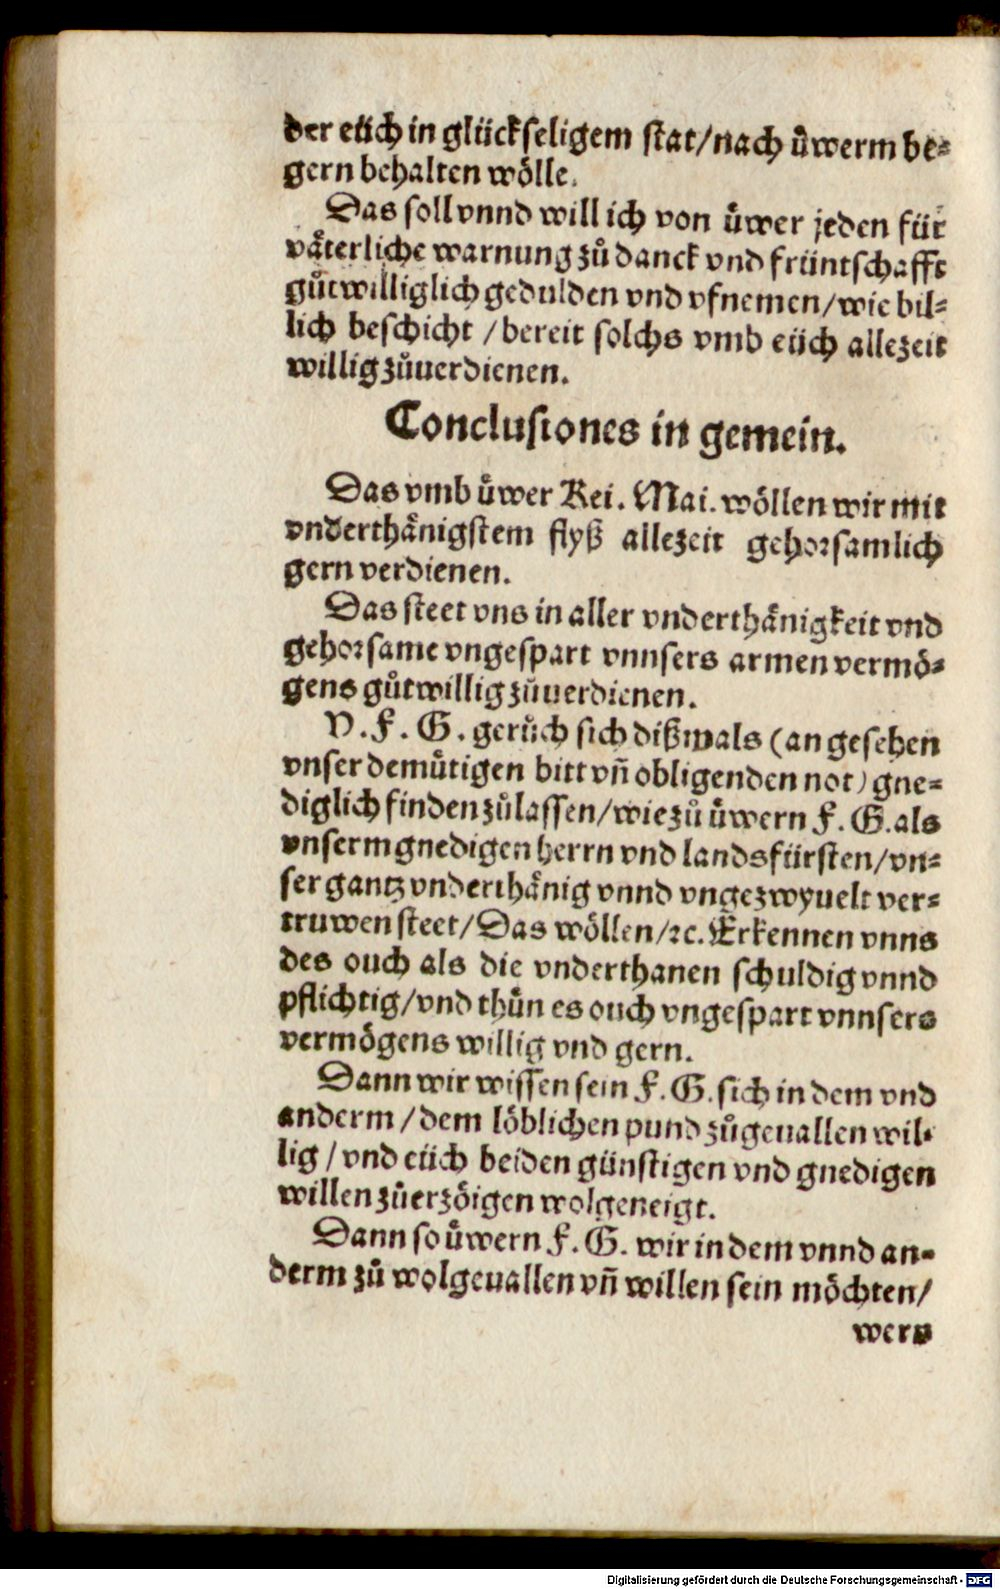 der eüch in glückseligem stat/nach üwerm be⸗
gern behalten wölle.
Das soll vnnd will ich von üwer jeden für
väterliche warnung zů danck vnd früntschafft
gůtwilliglich gedulden vnd vfnemen/wie bil⸗
lich beschicht /bereit solchs vmb eüch allezeit
willig zůuerdienen.
Conclusiones in gemein.
Das vmb üwer Kei. Mai. wöllen wir mit
vnderthänigstem flyß allezeit gehorsamlich
gern verdienen.
Das steet vns in aller vnderthänigkeit vnd
gehorsame vngespart vnnsers armen vermö⸗
gens gůtwillig zůuerdienen.
V. F. G. gerůch sich dißmals (angesehen
vnser demütigen bitt vn̄ obligenden not) gne⸗
diglich finden zůlassen/wie zů üwern F. G. als
vnserm gnedigen herrn vnd landsfürsten/vn⸗
ser gantz vnderthänig vnnd vngezwyuelt ver⸗
truwen steet/Das wöllen/ꝛc. Erkennen vnns
des ouch als die vnderthanen schuldig vnnd
pflichtig/vnd thůn es ouch vngespart vnnsers
vermögens willig vnd gern.
Dann wir wissen sein F. G. sich in dem vnd
anderm /dem löblichen pund zůgeuallen wil⸗
lig /vnd eüch beiden günstigen vnd gnedigen
willen zůerzöigen wolgeneigt.
Dann so üwern F. G. wir in dem vnnd an⸗
derm zů wolgeuallen vn̄ willen sein möchten/
wers
Digitalisierung gefördert durch die Deutsche Forschungsgemeinschaft - DFG